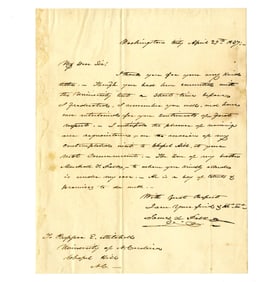 Washington City April 27th 1857.
My Dear Sir:
I thank you for your very kind
Though you had been connected with
the University but a short time before
I graduated, I remember you well, and have
ever entertained for you sentiments of great
respect. I anticipate the pleasure of
in the course of my
contemplated visit to Chapel Hill, to your
next Commencement. The son of my brother
Marshall T. Polk, to whom you kindly allude
is under my care. He is a boy of talents &
promises to do well.
With Great Respect
I am Your friend &
James K. Polk
To Professor E. Mitchell
University of N. Carolina
Chapel Hill
N.C.